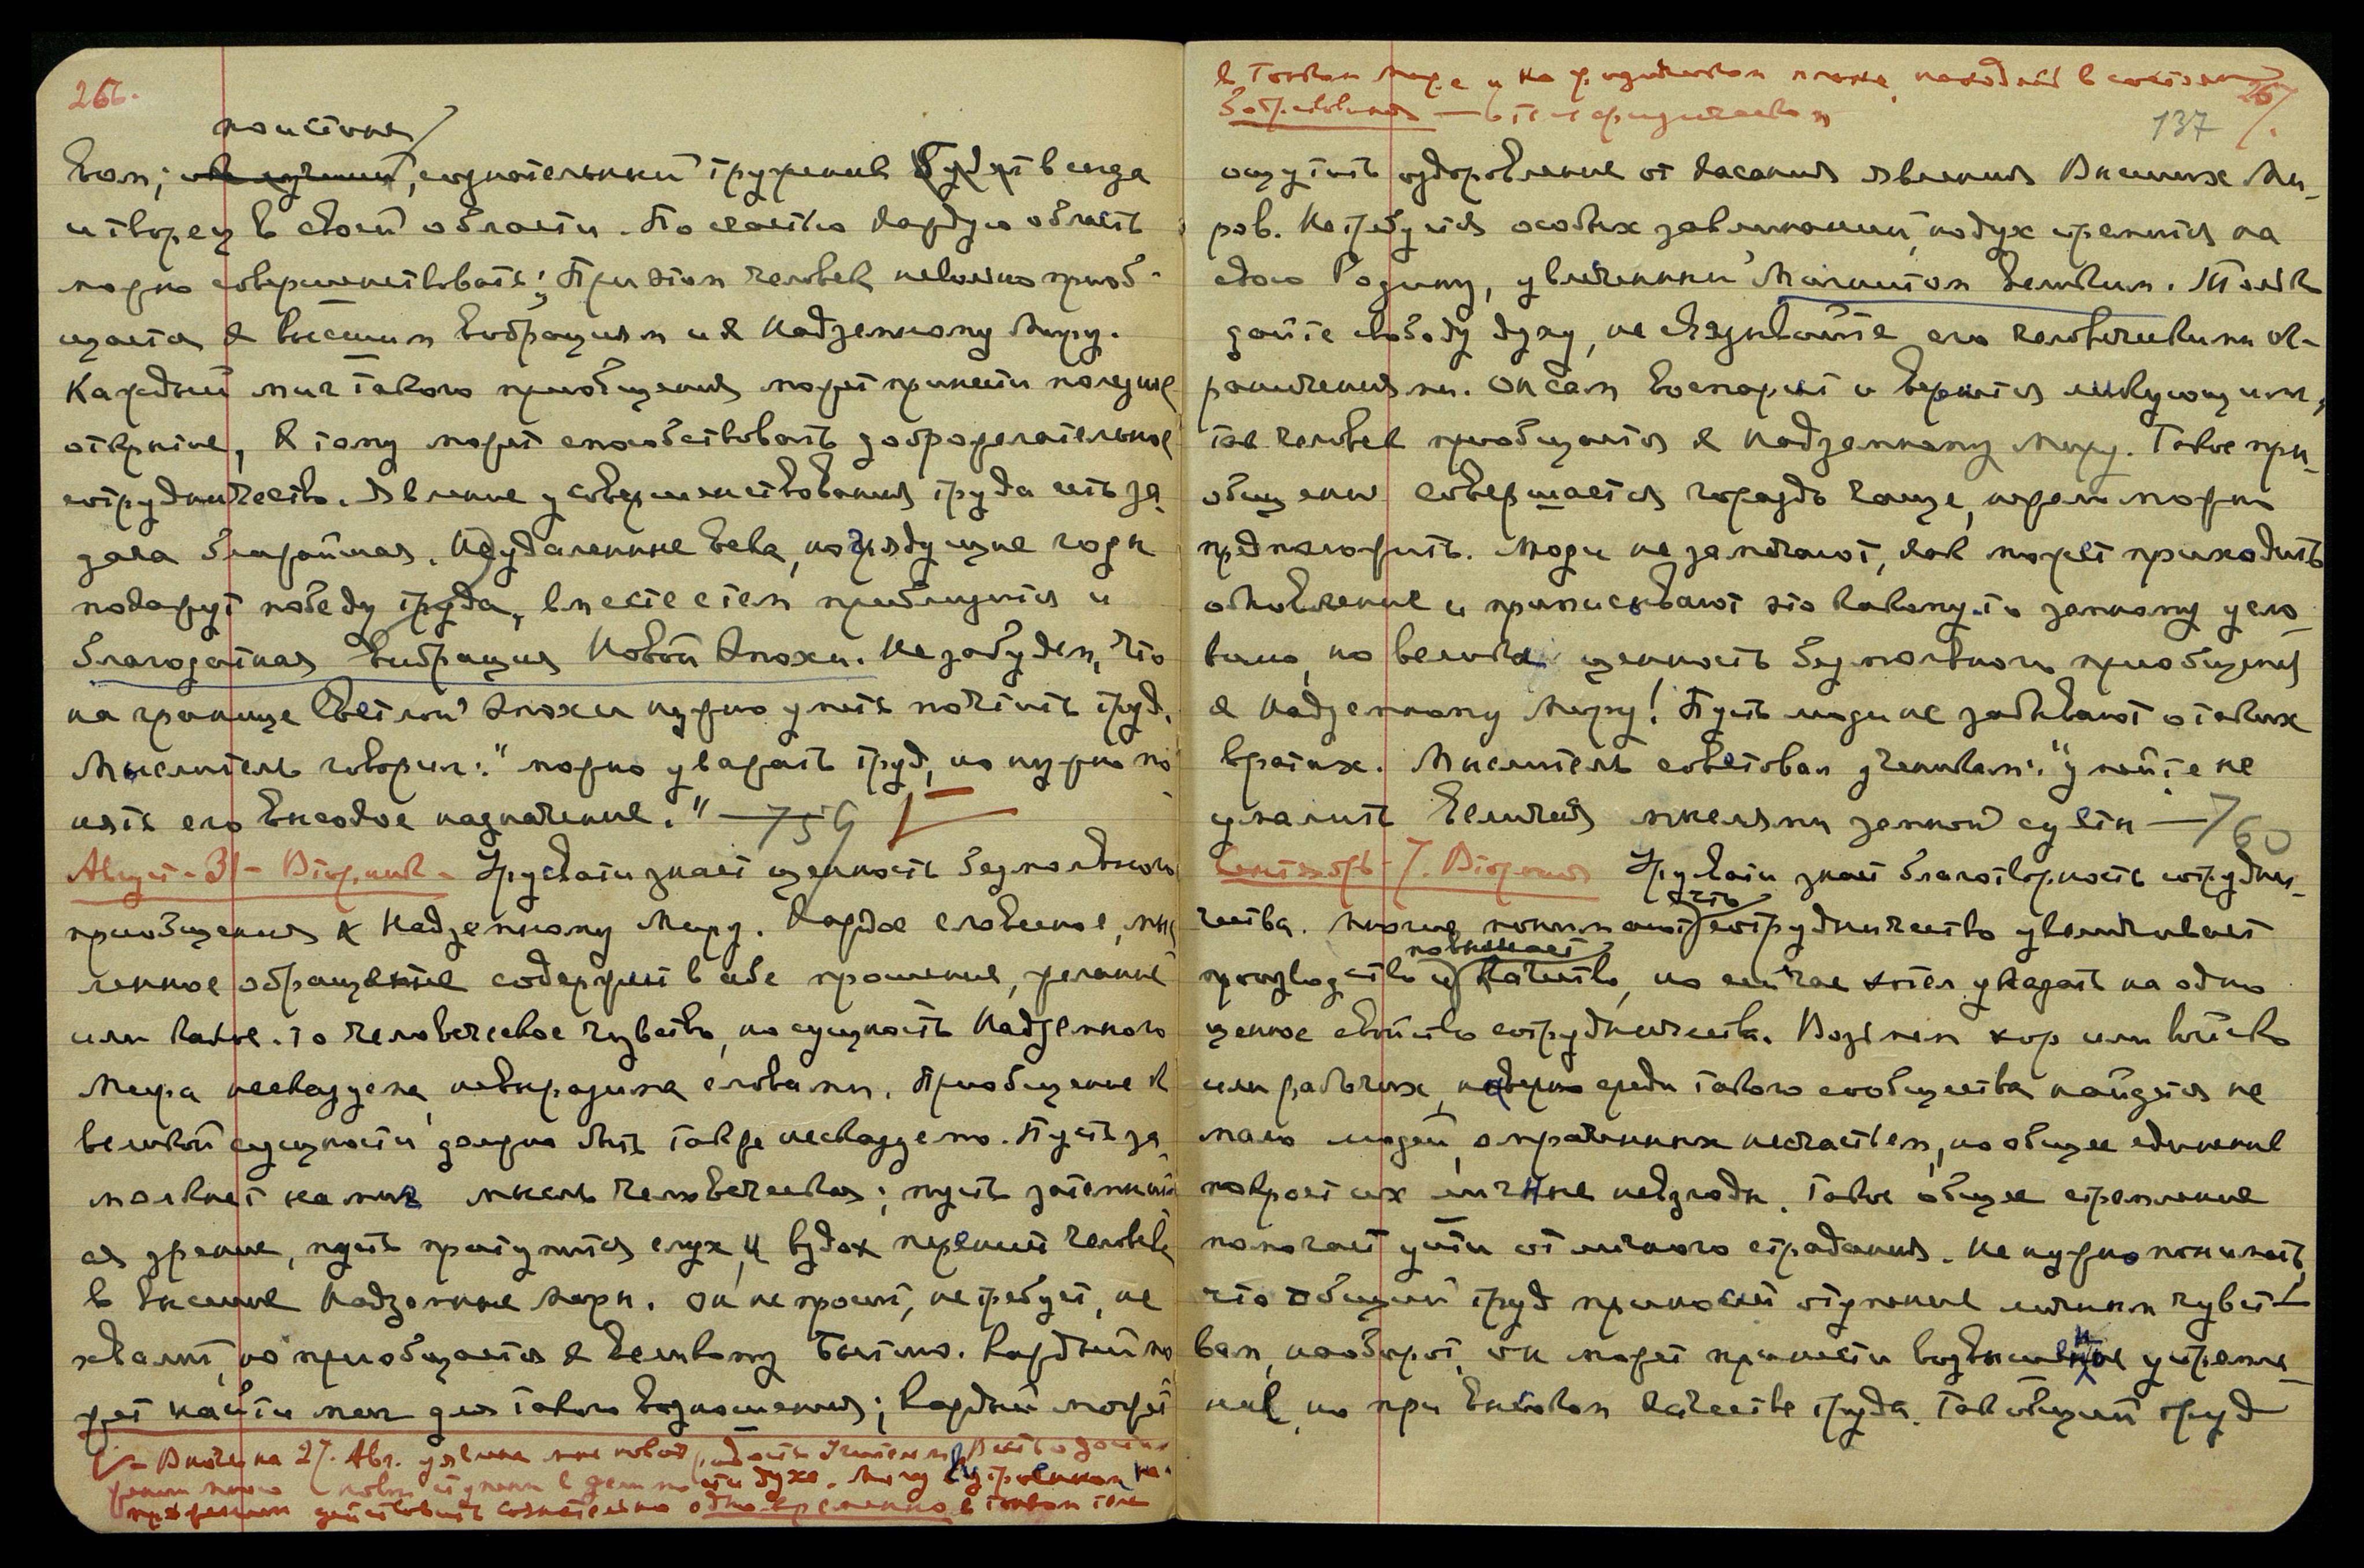 266.
поистине
вом; сознательный труженик будет всегда
и творец в своей области. По счастью каждую область
можно совершенствовать; При этом человек невольно приоб-
щается к высшим вибрациям и к Надземному Миру.
Каждый миг такого приобщения может принести полезное
открытие, к тому может способствовать доброжелательное
сотрудничество. Явление усовершенствования труда есть за-
дача ближайшая. Не удаленные века, но грядущие годы
покажут победу труда, вместе с тем приблизится и
благодатная вибрация Новой Эпохи. Не забудем, что
на границе Светлой Эпохи нужно уметь почтить труд.
Мыслитель говорил: "можно уважать труд, но нужно по-
нять его высокое назначение." — 759
Август - 31 - Вторник - Урусвати знает ценность безмолвного
приобщения к Надземному Миру. Каждое словесное, мыс
ленное обращение содержит в себе прошение, желание
или какое-то человеческое чувство, но сущность Надземного
Мира несказуема, невыразима словами. Приобщение к
великой сущности должно быть также несказуемо. Пусть за-
молкнет на миг мысль человеческая; пусть затемнит
ся зрение, пусть притупится слух, и вздох перенесет человека
в Высшие Надземные Миры. Он не просит, не требует, не
хвалит, но приобщается к Великому Бытию. Каждый мо-
жет найти миг для такого возношения; каждый может
В ночь на 27. Авг. явление мне новой
духа. Могу
действовать сознательно одновременно в тонком теле
в Тонком Мире и на физическом плане, находясь в состоянии
бодрствования — в теле физическом
267.
137
ощутить оздоровление от касания явления Высших Ми-
ров. Не требуется особых заклинаний, но дух стремится на
свою Родину, увлеченный Магнитом великим. Только
дайте свободу духу, не связывайте его человеческими ог-
раничениями. Он сам воспарит и вернется ликующим,
так человек приобщается к Надземному Миру. Такое при-
общение совершается гораздо чаще, нежели можно
предположить. Люди не замечают, как может приходить
обновление и приписывают это какому-то земному усло-
вию, но велика ценность безмолвного приобщения
к Надземному Миру! Пусть люди не забывают о таких
вратах. Мыслитель советовал ученикам: "умейте не
умалить Величия мыслями земной суеты — 760
Сентябрь - 7. Вторник Урусвати знает благотворность сотрудни-
что
чества. Многие понимают, сотрудничество увеличивает
повышает
производство и качество, но сейчас хотел указать на одно
ценное свойство сотрудничества. Возьмем хор или войско
или рабочих, наверно среди такого сообщества найдется не
мало людей, омраченных несчастьем, но общее единение
покроет их личные невзгоды. Такое общее стремление
помогает уйти от личного страдания. Не нужно понимать,
что общий труд приносит отупение личным чувст-
вам, наоборот, он может принести возвышенное устремле-
ние, но при высоком качестве труда. Так общий труд